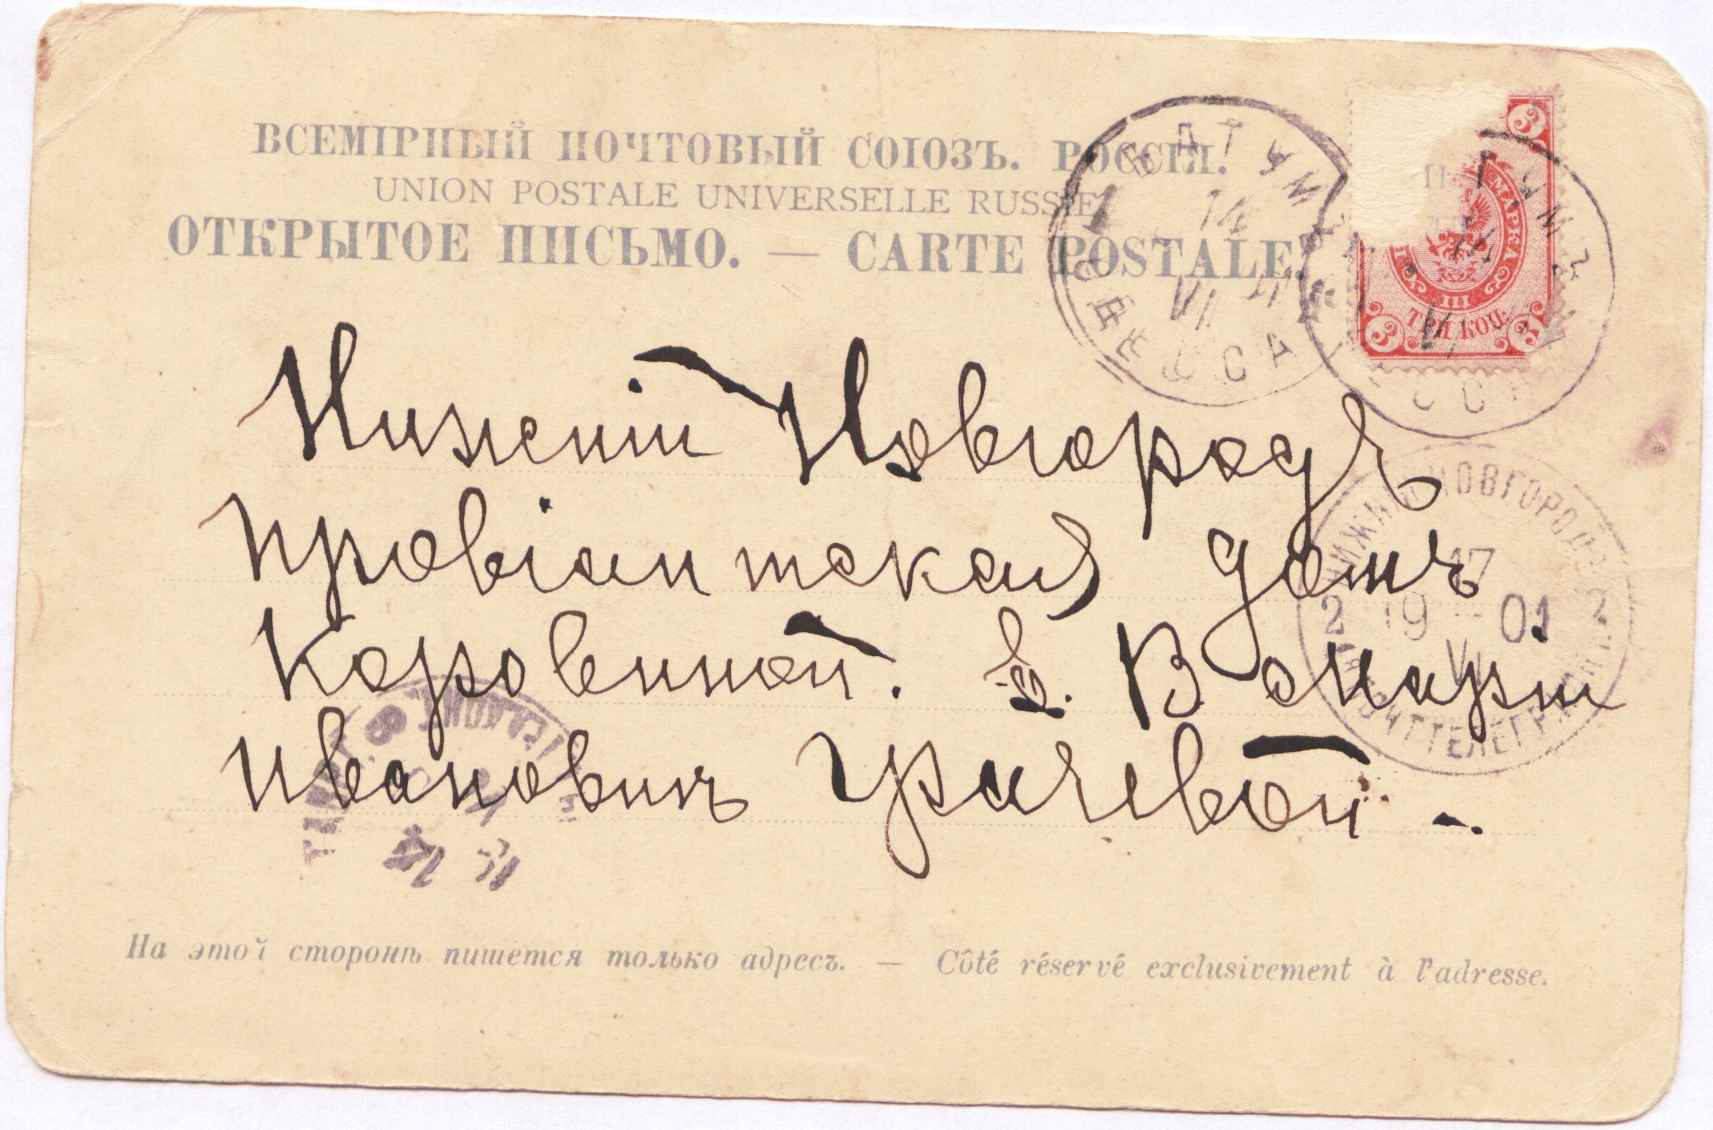 ВСЕМІРНЫЙ ПОЧТОВЫЙ СОЮЗЪ. РОССІЯ.
UNION POSTALE UNIVERSELLE RUSSIE
ОТКРЫТОЕ ПИСЬМО. — CARTE POSTALE.
БАТУМЪ
14
VI
ОДЕССА
МАРКА
3
3
3
ТРИ КОП.
Нижній Новгородъ
провіантская домъ
Коровиной. Е. В Марьи
Ивановнъ Грачевой -
НОВГОРОД
17
2 19 01 2
VI
На этой сторонѣ пишется только адресъ. — Côté réservé exclusivement à l'adresse.